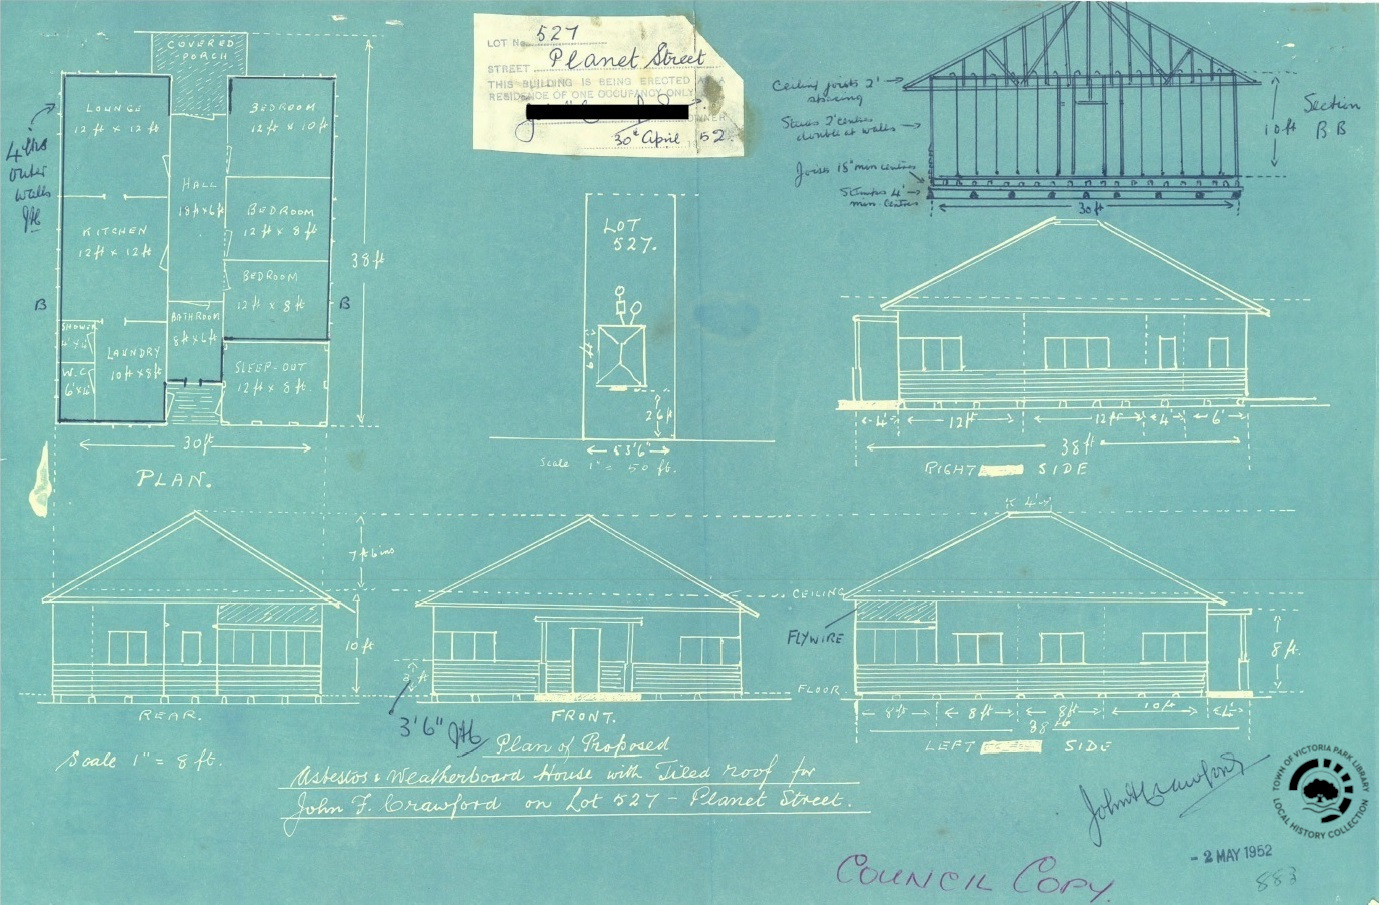 COVERED
PORCH
LOUNGE
12 ft x 12 ft
BEDROOM
12 ft x 10 ft
4 ins
outer
walls
HALL
18 ft x 6 ft
BEDROOM
12 ft x 8 ft
KITCHEN
12 ft x 12 ft
38 ft
BEDROOM
12 ft x 8 ft
B
B
BATHROOM
8 ft x 6 ft
SHOWER
4' x 4'
LAUNDRY
10 ft x 8 ft
W.C.
SLEEP-OUT
12 ft x 8 ft.
30 ft
PLAN.
LOT No. 527
STREET Planet Street
THIS BUILDING IS BEING ERECTED AS A
RESIDENCE OF ONE OCCUPANCY ONLY
OWNER
30th April 1952.
LOT
527.
26 ft
53'6"
Scale 1" = 50 ft.
Ceiling joists 2'
spacing
Studs 2' centres
double at walls
Joists 18" min centres
Stumps 4'
min. centres
10 ft
Section
B B
30 ft
4'
12 ft
12 ft
4'
6'
38 ft
RIGHT SIDE
7 ft 6 ins
10 ft
REAR.
3 ft
3'6" JH
FRONT.
4'
CEILING
FLYWIRE
FLOOR
8 ft.
8 ft
8 ft
8 ft
10 ft
4'
38 ft
LEFT SIDE
Scale 1" = 8 ft.
Plan of Proposed
Asbestos & Weatherboard House with Tiled roof for
John F. Crawford on Lot 527 - Planet Street.
John H Crawford
TOWN OF VICTORIA PARK LIBRARY
LOCAL HISTORY COLLECTION
- 2 MAY 1952
883
COUNCIL COPY.